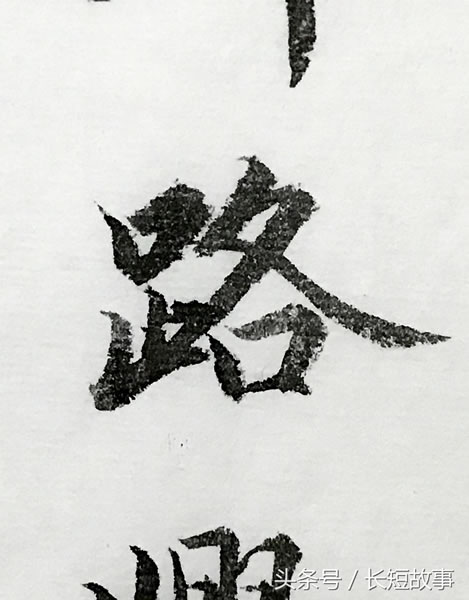 路
头条号 / 长短故事